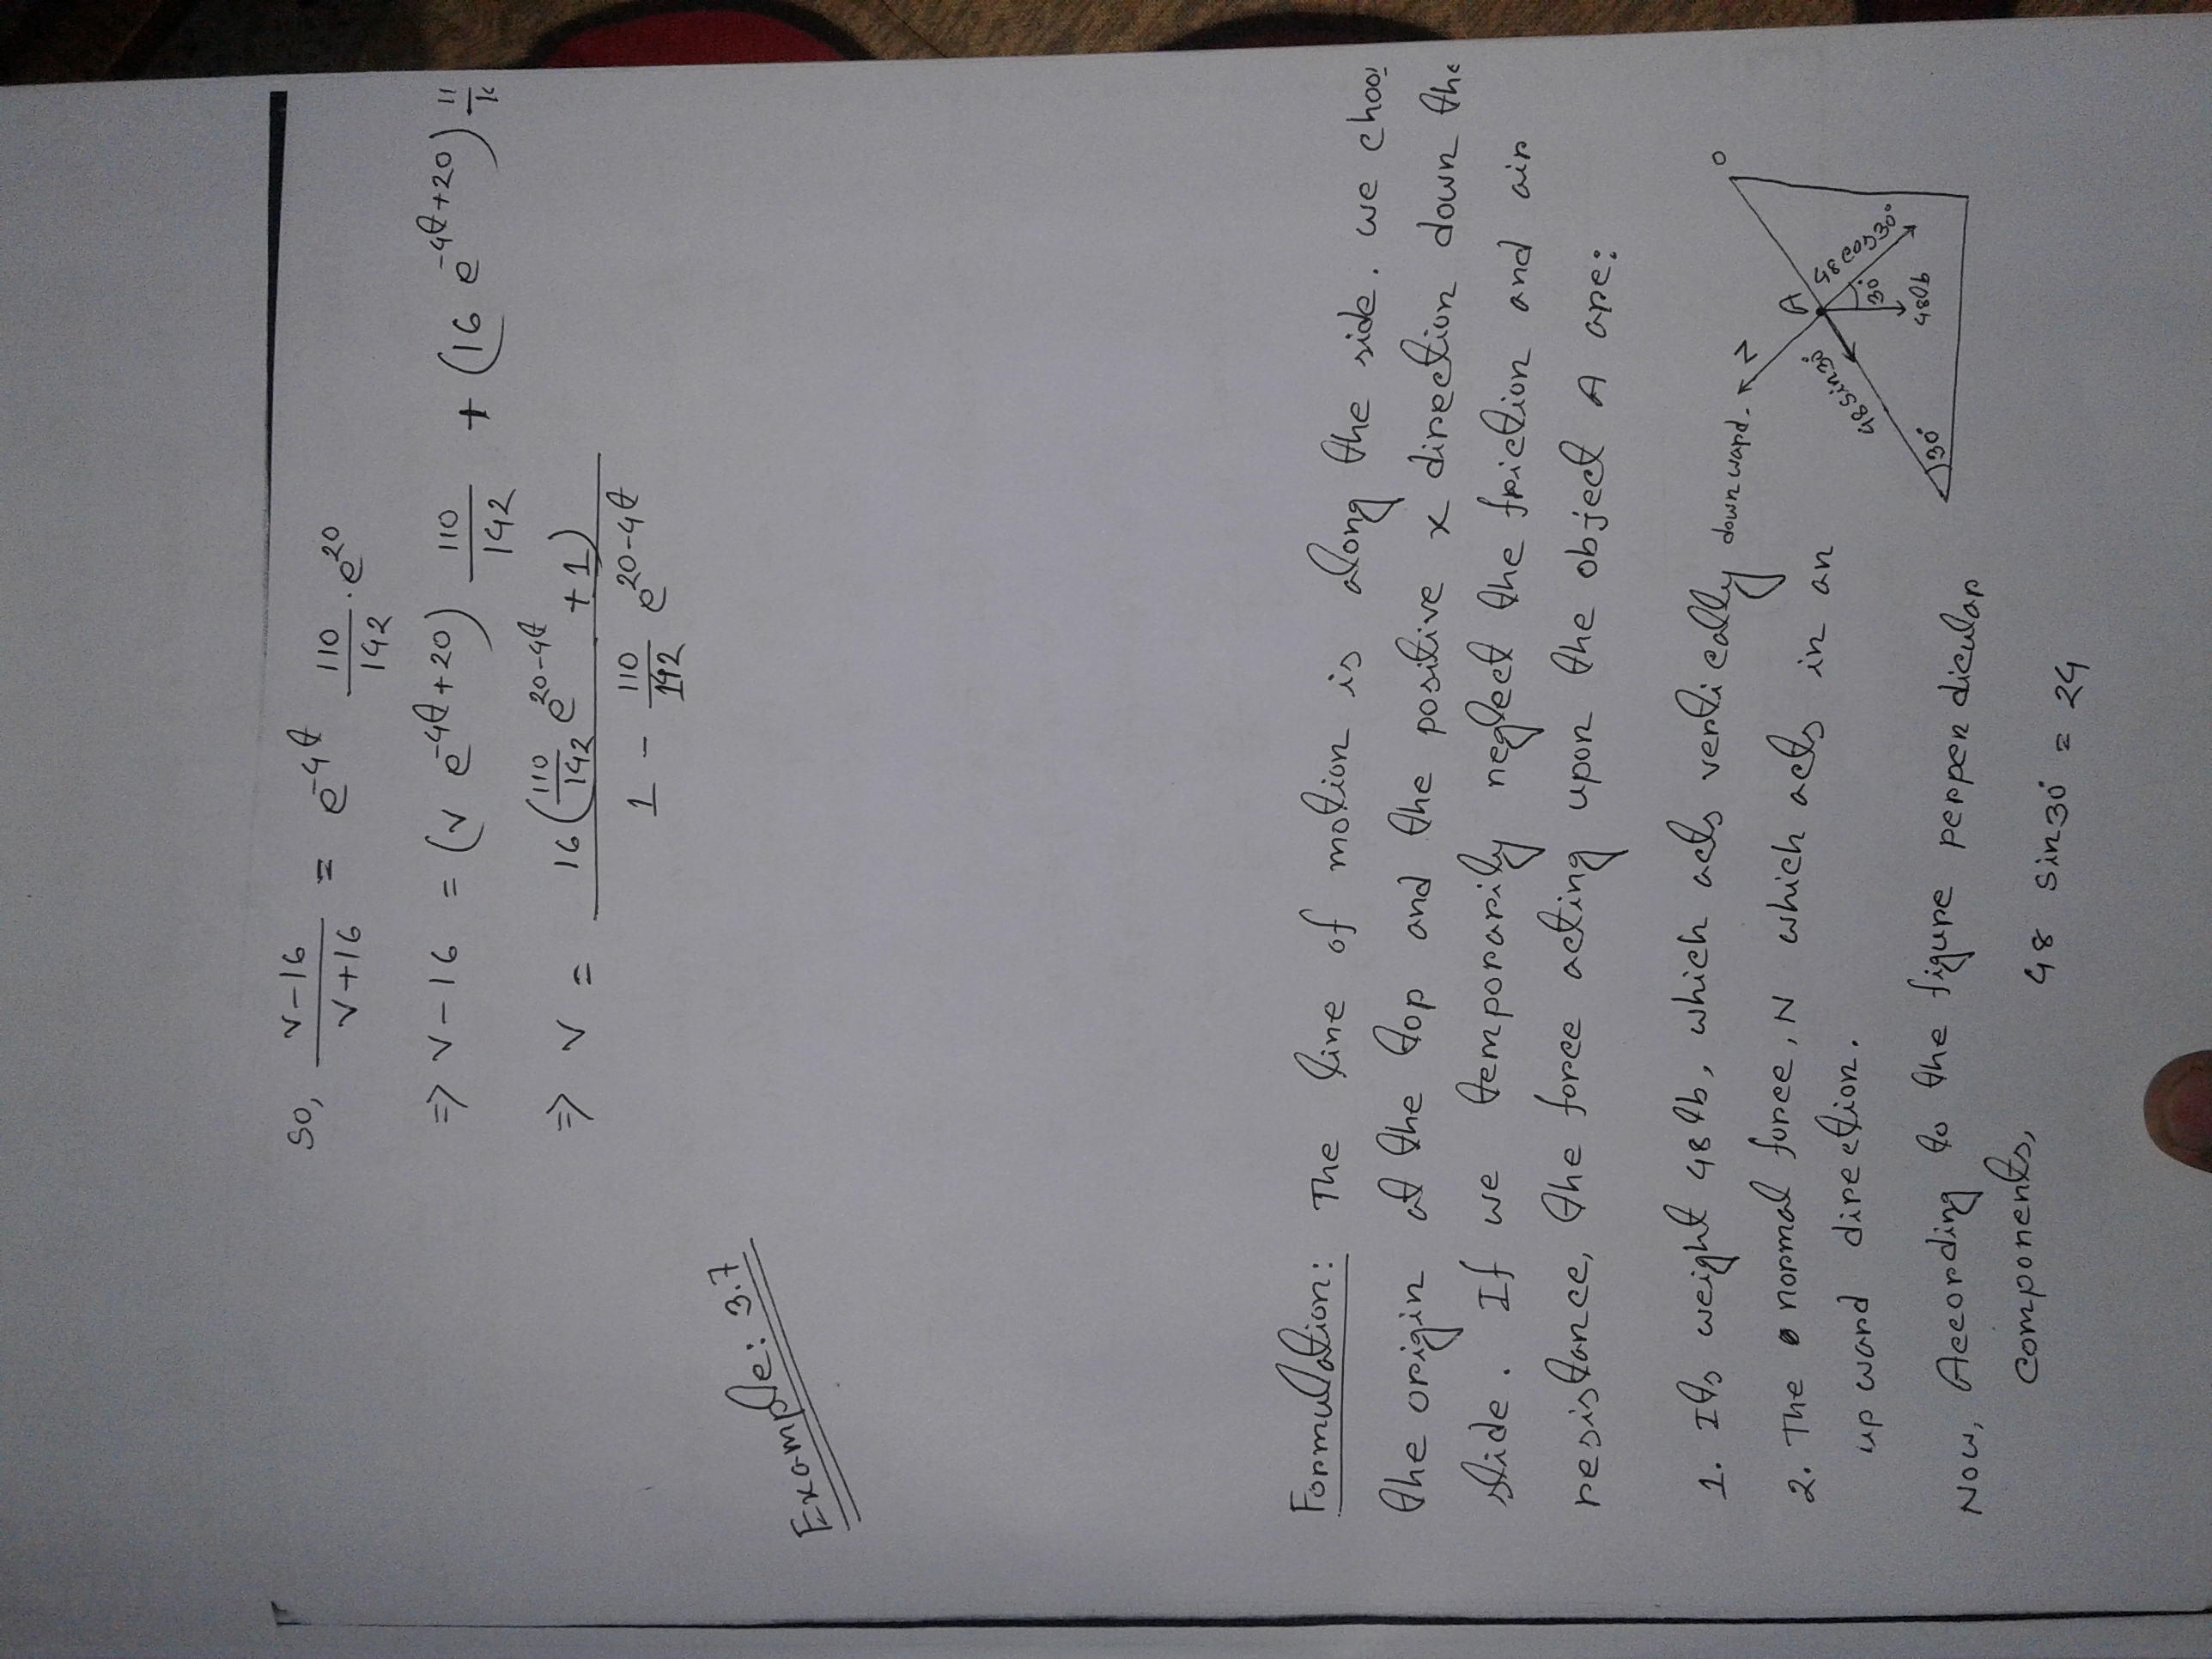 so, v-16 / v+16 = e^-4t 110/142 . e^20
⇒ v-16 = (v e^-4t+20) 110/142 + (16 e^-4t+20)
⇒ v = 16(110/142 e^20-4t + 1) / 1 - 110/142 e^20-4t
Example: 3.7
Formulation: The line of motion is along the side. we choos
the origin at the top and the positive x direction down the
slide. If we temporarily neglect the friction and air
resistance, the force acting upon the object A are:
1. Its weight 48 lb, which acts vertically downward.
2. The normal force, N which acts in an
up ward direction.
Now, According to the figure perpendicular
components,
48 sin30° = 24
O
N
A
48 sin30°
48cos30°
30°
48lb
30°